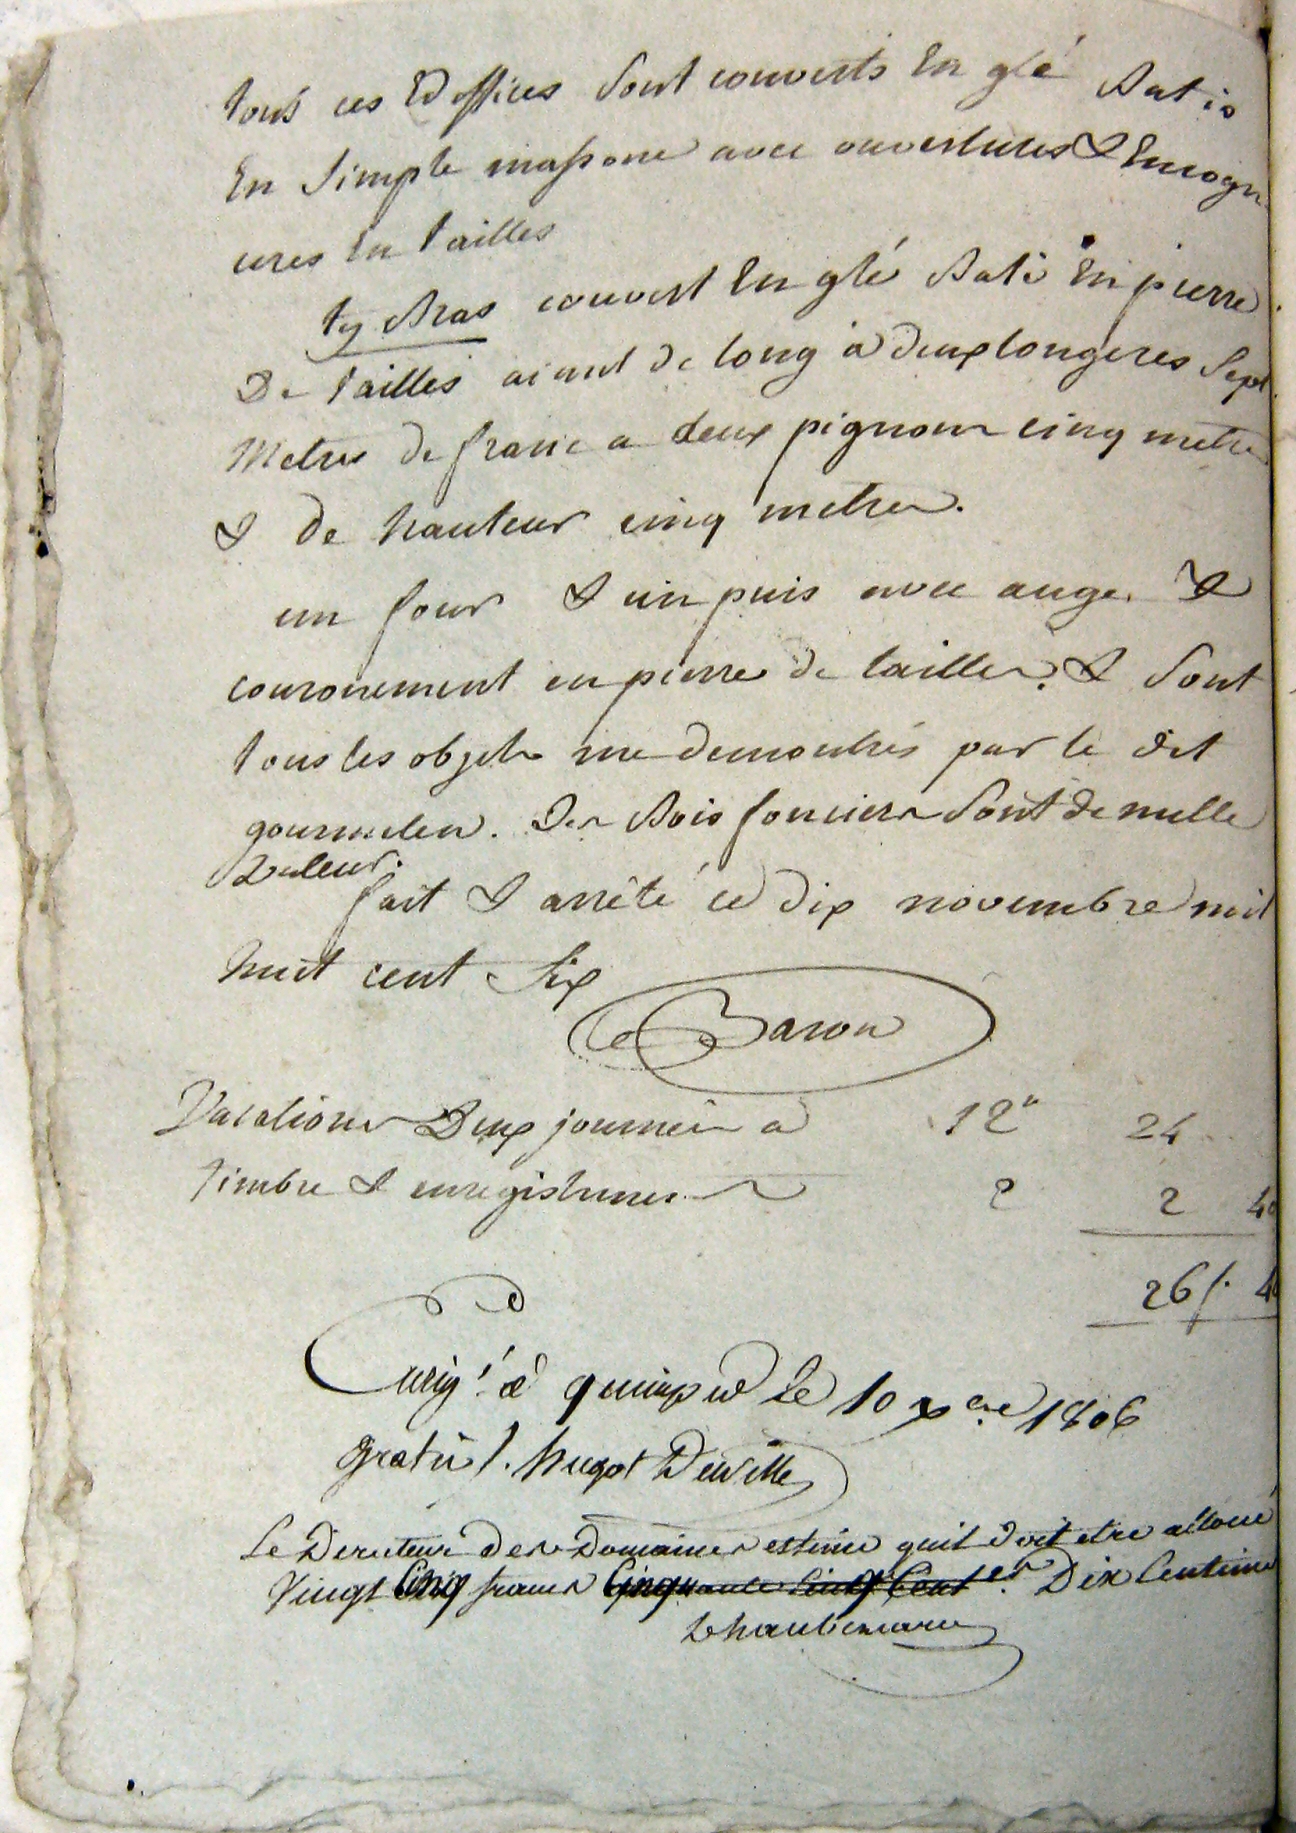 tous ces Ediffices Sont couverts En glé Batis
En Simple massone avec ouvertures & Encogn
ures En tailles
ty Bras couvert En glé Bati En pierre
De tailles aiant de long a deux longeres Sept
Metres de franc a deux pignons cinq metres
& de hauteur cinq metres.
un four & un puis avec auge &
couronement en pierre de tailles. & Sont
tous les objets me demontrés par le dit
Des Bois fonciers Sont de nulle
Valeur.
fait & arrêté ce dix novembre mil
huit cent Six
Le Baron
Vacations Deux journées a 12 24
timbre & enregistrement 2 2 40
26f. 40
Enrig. à quimper le 10 Xbre 1806
gratis.
Le Directeur des Domaines estime quil doit etre alloué
Vingt Cinq francs Cinquante Cinq Cent es. Dix Centimes